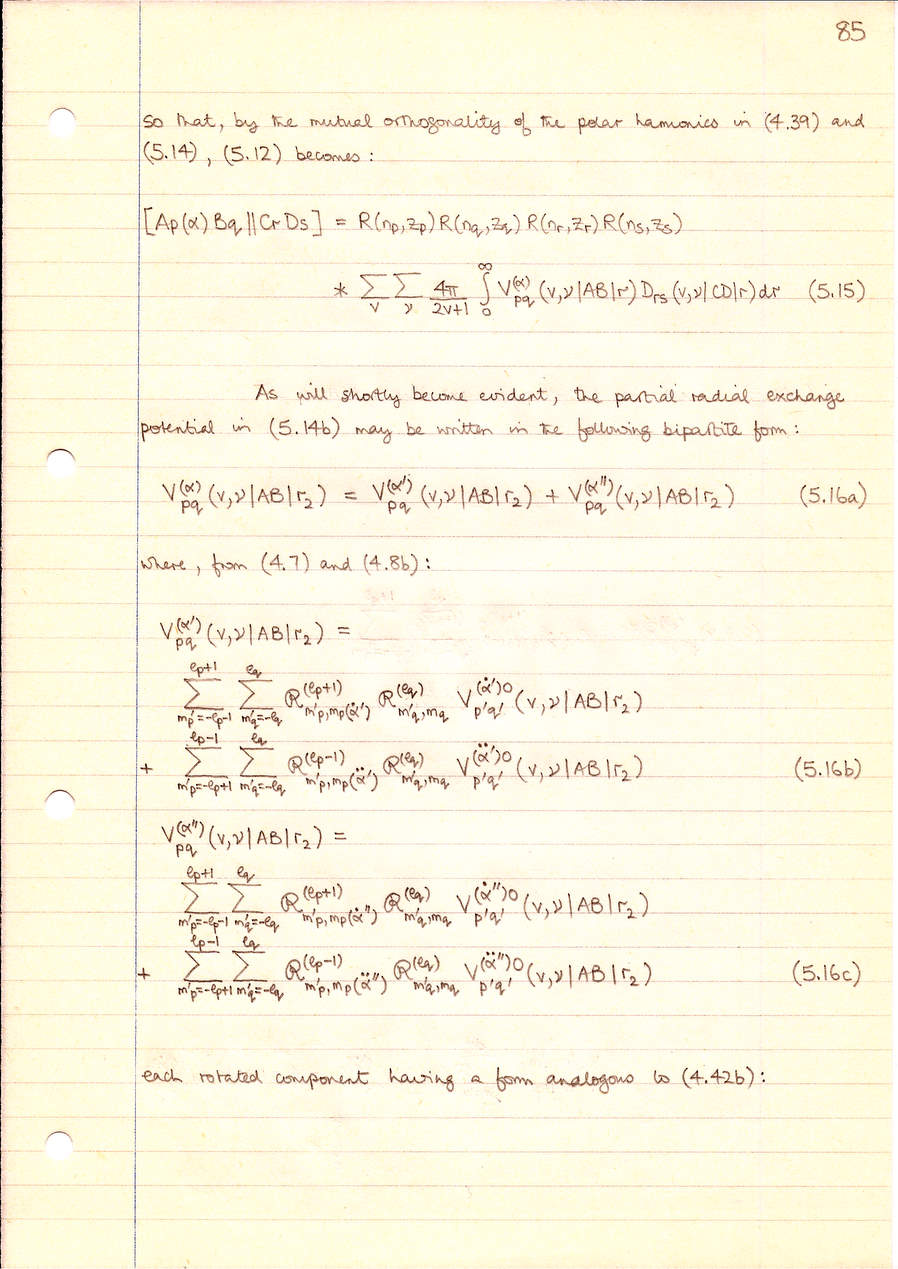 85
so that, by the mutual orthogonality of the polar harmonics in (4.39) and
(5.14), (5.12) becomes:
[Ap(α)Bq||CrDs] = R(np,zp)R(nq,zq)R(nr,zr)R(ns,zs)
* ∑_v ∑_ν 4π/(2v+1) ∫_0^∞ V_pq^(α)(v,ν|AB|r)D_rs(v,ν|CD|r)dr (5.15)
As will shortly become evident, the partial radial exchange
potential in (5.14b) may be written in the following bipartite form:
V_pq^(α)(v,ν|AB|r₂) = V_pq^(α')(v,ν|AB|r₂) + V_pq^(α'')(v,ν|AB|r₂) (5.16a)
where, from (4.7) and (4.8b):
V_pq^(α')(v,ν|AB|r₂) =
∑_{m'p=-ℓp-1}^{ℓp+1} ∑_{m'q=-ℓq}^{ℓq} R^(ℓp+1)_{m'p,mp(α̇')} R^(ℓq)_{m'q,mq} V_{p'q'}^{(α̇')0}(v,ν|AB|r₂)
+ ∑_{m'p=-ℓp+1}^{ℓp-1} ∑_{m'q=-ℓq}^{ℓq} R^(ℓp-1)_{m'p,mp(α̈')} R^(ℓq)_{m'q,mq} V_{p'q'}^{(α̈')0}(v,ν|AB|r₂) (5.16b)
V_pq^(α'')(v,ν|AB|r₂) =
∑_{m'p=-ℓp-1}^{ℓp+1} ∑_{m'q=-ℓq}^{ℓq} R^(ℓp+1)_{m'p,mp(α̇'')} R^(ℓq)_{m'q,mq} V_{p'q'}^{(α̇'')0}(v,ν|AB|r₂)
+ ∑_{m'p=-ℓp+1}^{ℓp-1} ∑_{m'q=-ℓq}^{ℓq} R^(ℓp-1)_{m'p,mp(α̈'')} R^(ℓq)_{m'q,mq} V_{p'q'}^{(α̈'')0}(v,ν|AB|r₂) (5.16c)
each rotated component having a form analogous to (4.42b):